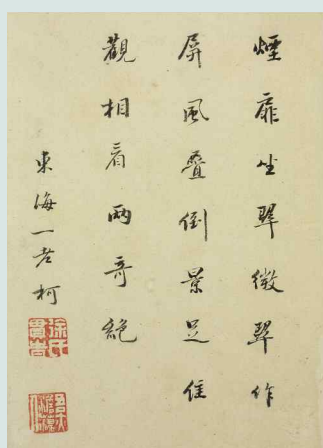 煙扉坐翠微翠作
屏風叠倒景足佳
觀相看兩奇絕
東海一老柯